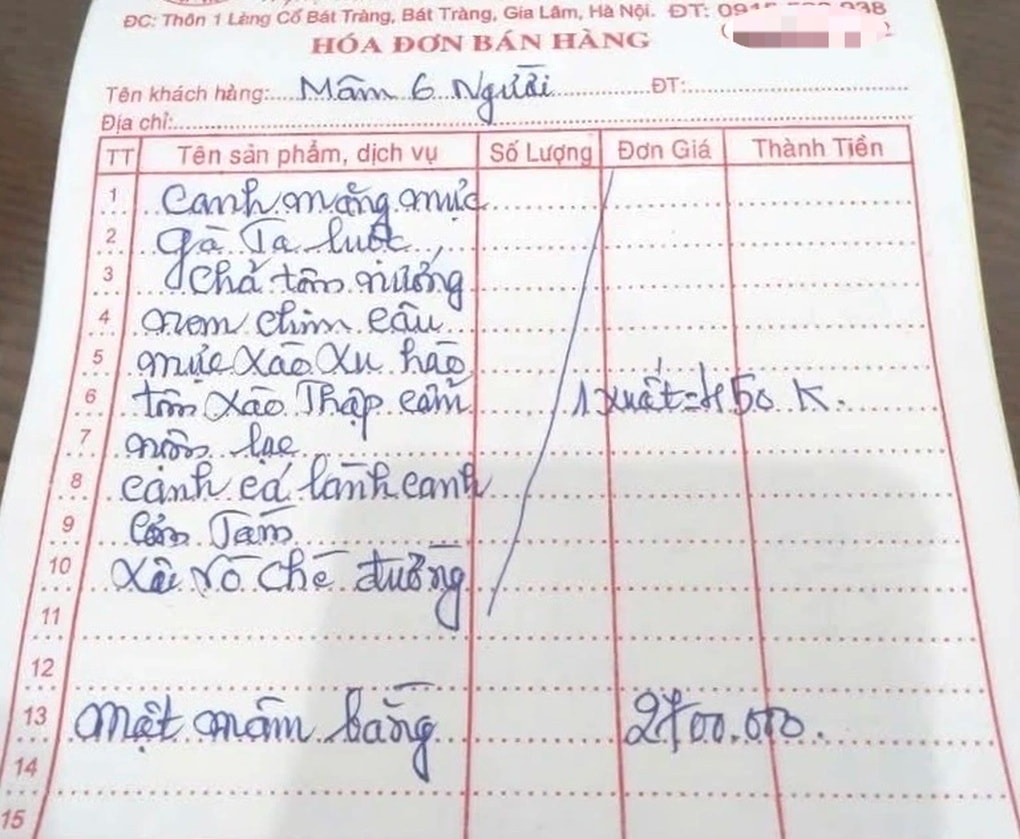 ĐC: Thôn 1 Làng Cổ Bát Tràng, Bát Tràng, Gia Lâm, Hà Nội. ĐT:
HÓA ĐƠN BÁN HÀNG
Tên khách hàng: Mâm 6 Người ĐT:
Địa chỉ:
TT Tên sản phẩm, dịch vụ Số Lượng Đơn Giá Thành Tiền
1 Canh măng mực
2 gà Ta luộc
3 Chả tôm nướng
4 nem chim câu
5 mực xào xu hào
6 tôm xào Thập cẩm 1 xuất = 450 K.
7 nộm lạc
8 cạnh cá lành canh
9 Cơm Tám
10 Xôi vò chè đường
11
12
13 Một mâm bằng 2700.000.
14
15